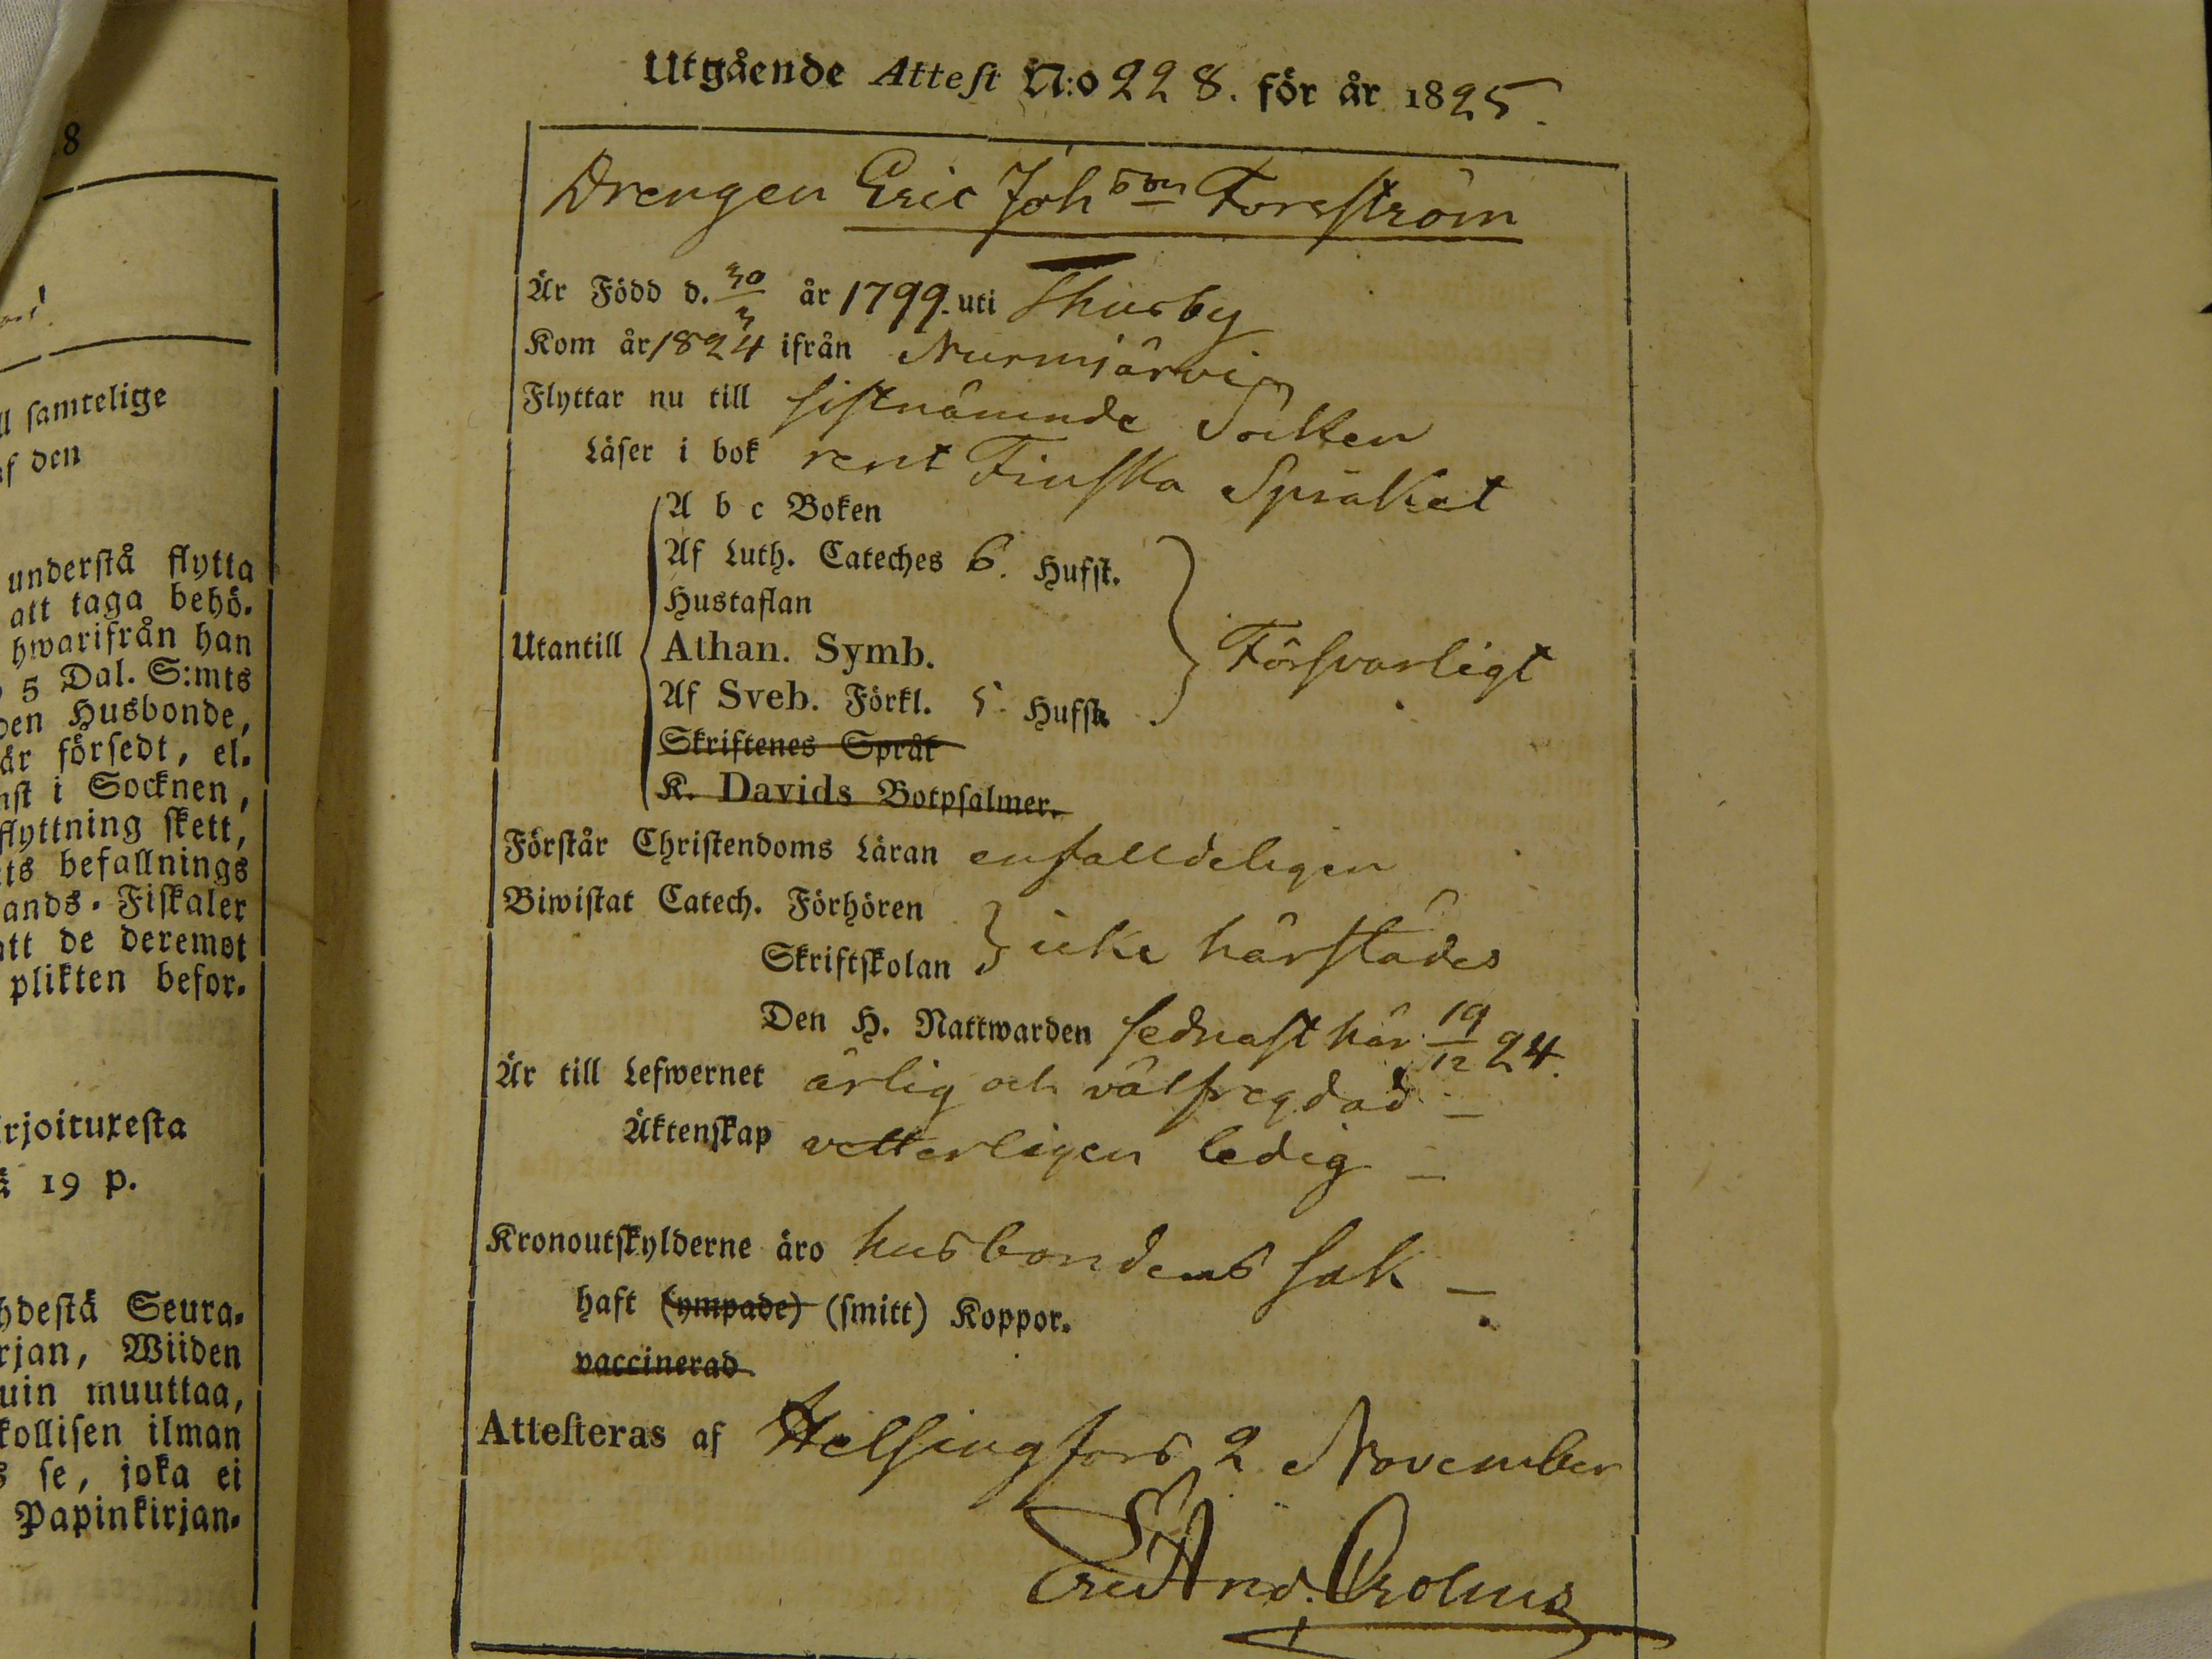 8
ll samtelige
af den
understå flytta
att taga behö-
hwarifrån han
5 Dal. S:mts
den Husbonde,
är försedt, el-
nst i Socknen,
flyttning skett,
ets befallnings
ands-Fiskaler
att de deremot
plikten befor-
rjoituxesta
ä 19 p.
hdestä Seura-
rjan, Wiiden
uin muuttaa,
kollisen ilman
s se, joka ei
Papinkirjan-
Utgående Attest N:o 228. för år 1825.
Drengen Eric Joh son Forsström
Är Född d. 30/3 år 1799. uti Thusby
Kom år 1824 ifrån Nurmijärvi
Flyttar nu till sistnämnde Socken
Läser i bok rent Finska Språket
A b c Boken
Af Luth. Cateches 6. Hufst.
Hustaflan
Utantill Athan. Symb. Försvarligt
Af Sveb. Förkl. 5. Hufst.
Skriftenes Språk
K. Davids Botpsalmer.
Förstår Christendoms Läran enfalldeligen
Biwistat Catech. Förhören
Skriftskolan icke härstädes
Den H. Nattwarden sednast här 19/12 24.
Är till Lefwernet ärlig och välfregdad –
Äktenskap vetterligen ledig –
Kronoutskylderne äro husbondens sak –
haft (ympade) (smitt) Koppor.
vaccinerad
Attesteras af Helsingfors 2 November
Eric And. Crolius